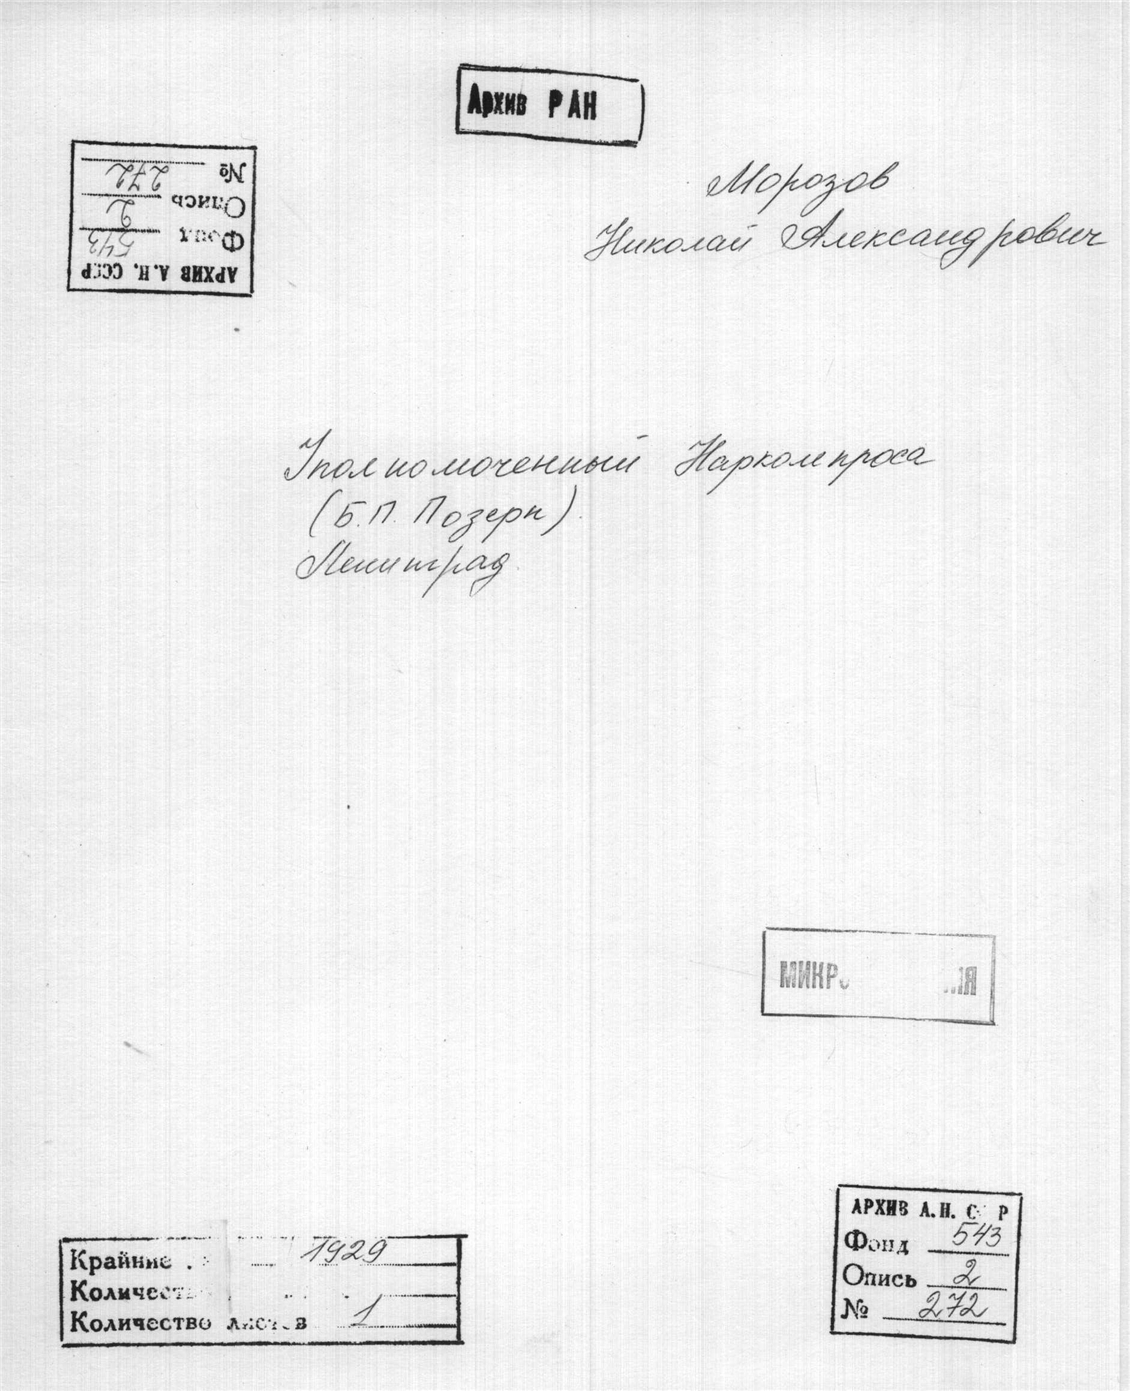 Архив РАН
АРХИВ А.Н. СССР
Фонд 543
Опись 2
№ 272
Морозов
Николай Александрович
Уполномоченный Наркомпроса
(Б.П. Позерн).
Ленинград.
Крайние 1929
Количество листов 1
АРХИВ А.Н. СССР
Фонд 543
Опись 2
№ 272